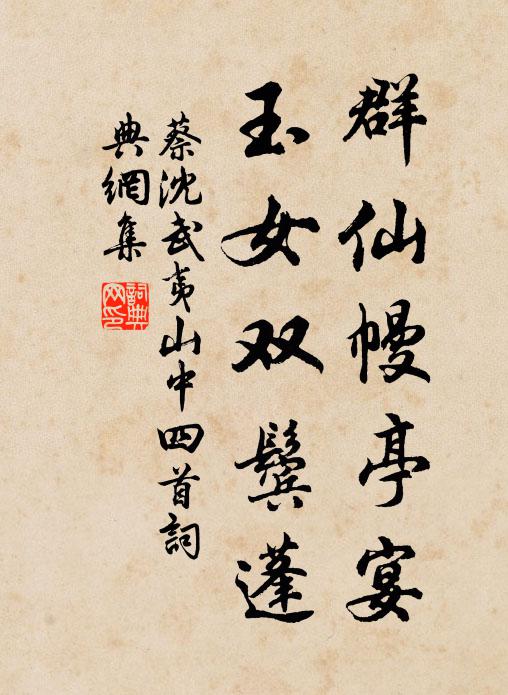 群仙幔亭宴
玉女双鬓蓬
蔡沈武夷山中四首詞
典網集
詞典
网印